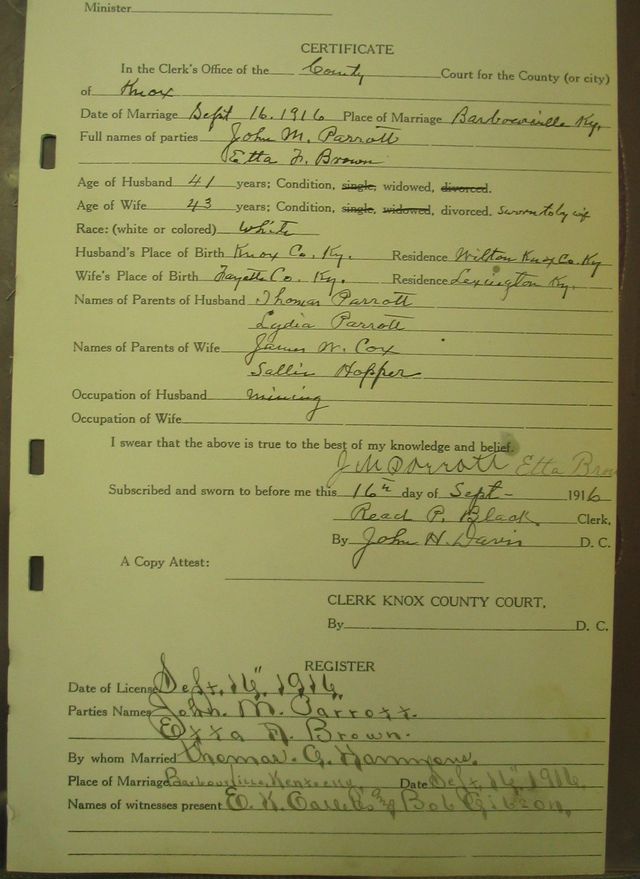 Minister
CERTIFICATE
In the Clerk's Office of the County Court for the County (or city)
of Knox
Date of Marriage Sept 16. 1916 Place of Marriage Barbourville Ky.
Full names of parties John M. Parrott
Etta F. Brown
Age of Husband 41 years; Condition, single, widowed, divorced.
Age of Wife 43 years; Condition, single, widowed, divorced. sworn to by
Race: (white or colored) White
Husband's Place of Birth Knox Co. Ky. Residence Wilton Knox Co. Ky
Wife's Place of Birth Fayette Co. Ky. Residence Lexington Ky.
Names of Parents of Husband Thomas Parrott
Lydia Parrott
Names of Parents of Wife James W. Cox
Sallie Hopper
Occupation of Husband mining
Occupation of Wife
I swear that the above is true to the best of my knowledge and belief.
J M Parrott Etta Brow
Subscribed and sworn to before me this 16th day of Sept - 1916
Read P. Black Clerk,
By John H. Davis D. C.
A Copy Attest:
CLERK KNOX COUNTY COURT,
By D. C.
REGISTER
Date of License Sept. 16" 1916
Parties Names John. M. Parrott.
Etta Brown.
By whom Married Thomas. G.
Place of Marriage Barbourville, Kentucky, Date Sept. 16" 1916
Names of witnesses present E. K. and Bob Gibson.